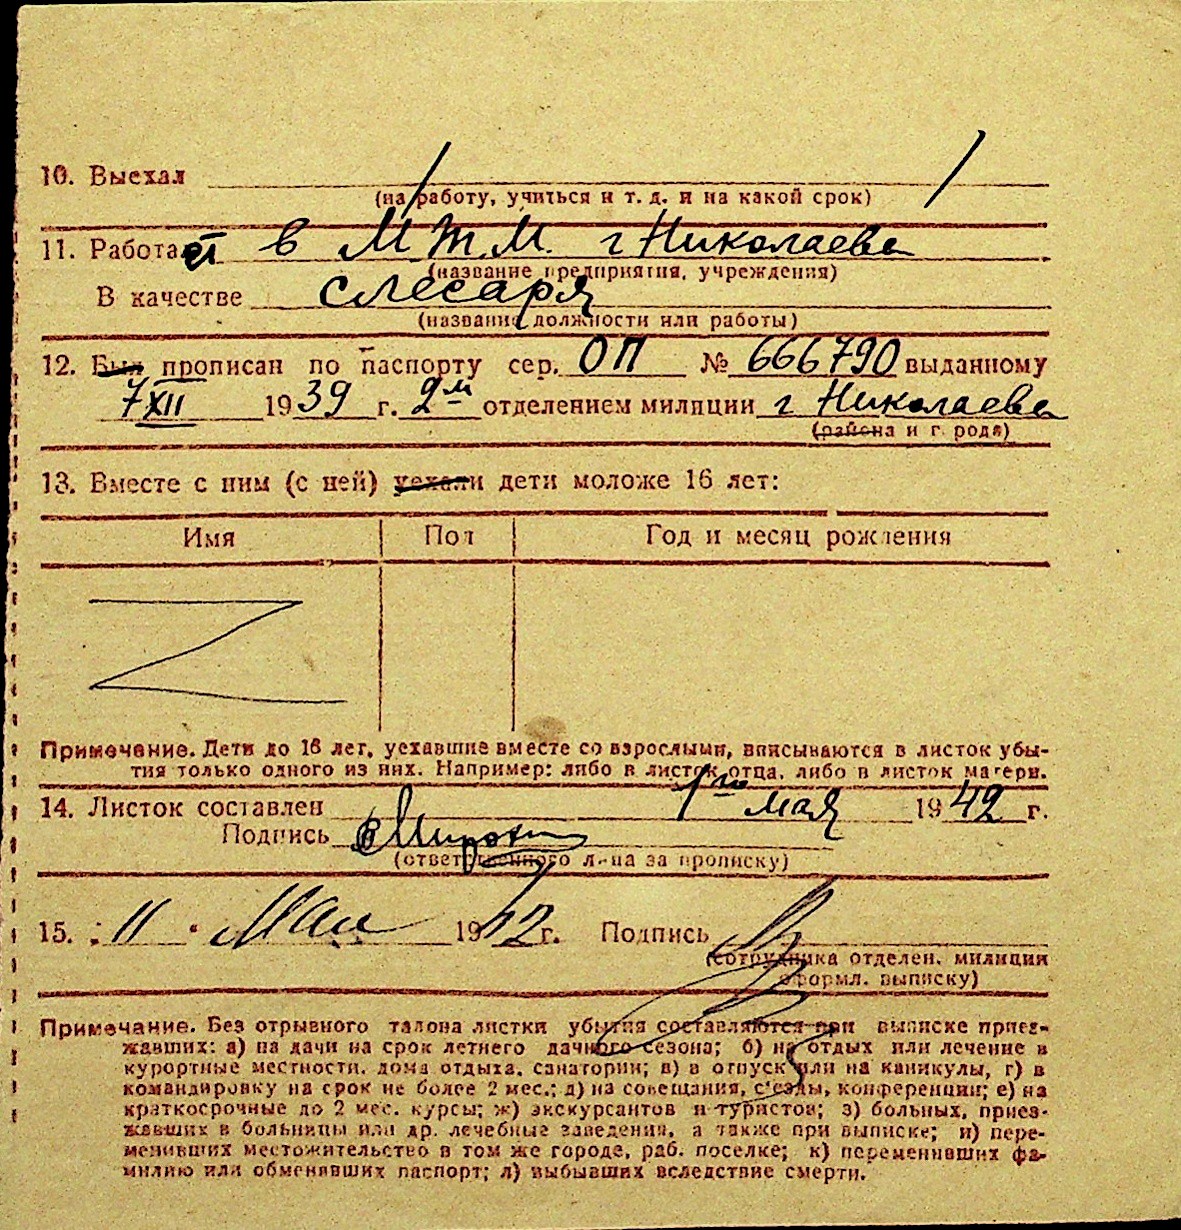 10. Выехал
(на работу, учиться и т. д. и на какой срок)
11. Работает в М.Т.М. г Николаева
(название предприятия, учреждения)
В качестве слесаря
(название должности или работы)
12. Был прописан по паспорту сер. ОП № 666790 выданному
7 XII 1939 г. 2м отделением милиции г Николаева
(района и города)
13. Вместе с ним (с ней) уехали дети моложе 16 лет:
Имя Пол Год и месяц рождения
Примечание. Дети до 16 лет, уехавшие вместе со взрослыми, вписываются в листок убы-
тия только одного из них. Например: либо в листок отца, либо в листок матери.
14. Листок составлен 1го мая 1942 г.
Подпись
(ответственного лица за прописку)
15. "11" Мая 1942 г. Подпись
(сотрудника отделен. милиции
оформл. выписку)
Примечание. Без отрывного талона листки убытия составляются при выписке приез-
жавших: а) на дачи на срок летнего дачного сезона; б) на отдых или лечение в
курортные местности, дома отдыха, санатории; в) в отпуск или на каникулы, г) в
командировку на срок не более 2 мес.; д) на совещания, с'езды, конференции; е) на
краткосрочные до 2 мес. курсы; ж) экскурсантов и туристов; з) больных, приез-
жавших в больницы или др. лечебные заведения, а также при выписке; и) пере-
менивших местожительство в том же городе, раб. поселке; к) переменивших фа-
милию или обменявших паспорт; л) выбывших вследствие смерти.